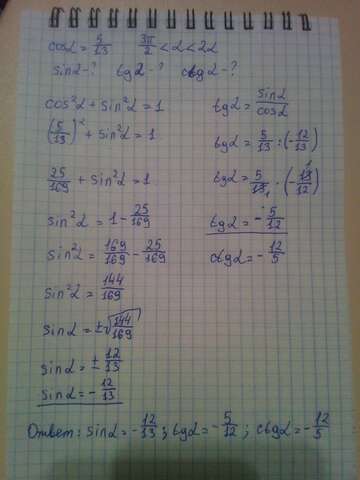 cosα = 5/13    3π/2 < α < 2α
sinα - ?    tgα - ?    ctgα - ?
cos²α + sin²α = 1
(5/13)² + sin²α = 1
25/169 + sin²α = 1
sin²α = 1 - 25/169
sin²α = 169/169 - 25/169
sin²α = 144/169
sinα = ±√144/169
sinα = ± 12/13
sinα = - 12/13
tgα = sinα/cosα
tgα = 5/13 : (-12/13)
tgα = 5/13 · (-13/12)
tgα = - 5/12
ctgα = - 12/5
Ответ: sinα = - 12/13 ; tgα = - 5/12 ; ctgα = - 12/5